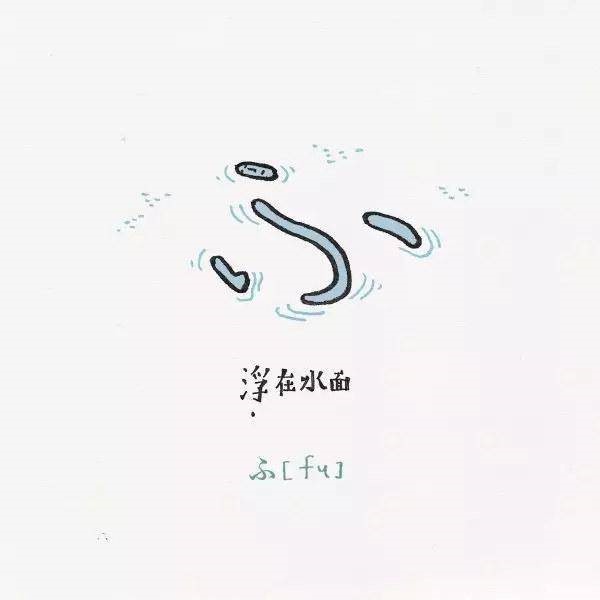 浮在水面
ふ[fu]